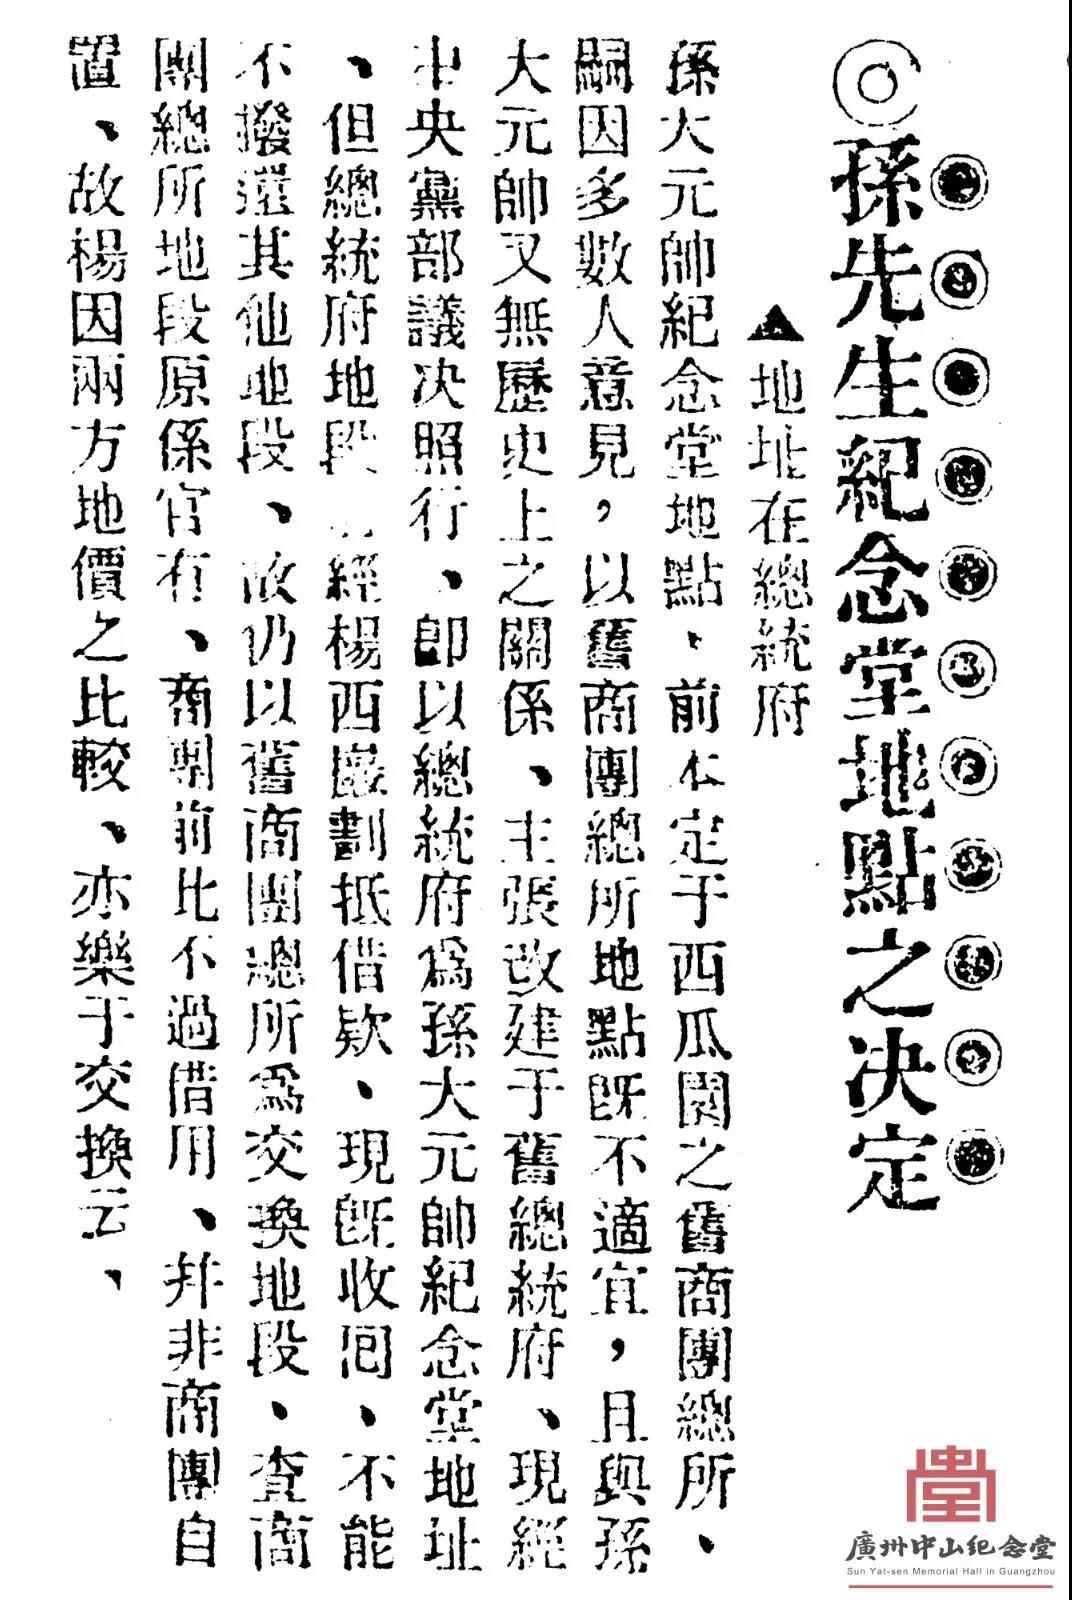 ◎孫先生紀念堂地點之决定
▲地址在總統府
孫大元帥紀念堂地點、前本定于西瓜園之舊商團總所、
嗣因多數人意見，以舊商團總所地點既不適宜，且與孫
大元帥又無歷史上之關係、主張改建于舊總統府、現經
中央黨部議决照行、即以總統府爲孫大元帥紀念堂地址
、但總統府地段 經楊西巖劃抵借欵、現既收囘、不能
不撥還其他地段、故仍以舊商團總所爲交換地段、查商
團總所地段原係官有、商團前此不過借用、幷非商團自
置、故楊因兩方地價之比較、亦樂于交換云、
廣州中山纪念堂
Sun Yat-sen Memorial Hall in Guangzhou